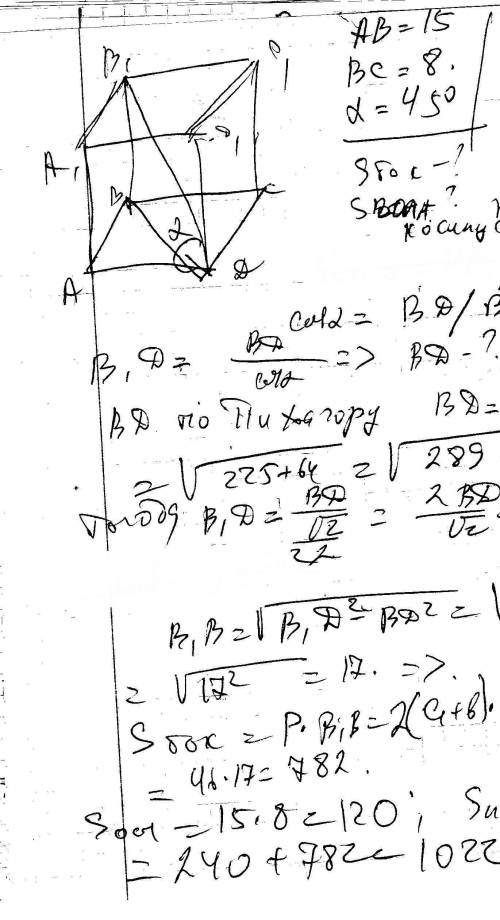 AB = 15
BC = 8.
α = 45°
Sбок - ?
B₁ C₁
A₁ D₁
B C
α
A D
cosα = BD/B
B₁D = BD/cosα => BD - ?
BD по Пифагору BD =
= √225+64 = √289
Тогда B₁D = BD/(√2/2) = 2BD/√2
B₁B = √B₁D² - BD² = √
= √17² = 17. =>
Sбок = P·B₁B = 2(a+b)·
= 46·17 = 782.
Sосн = 15·8 = 120; Sп
= 240 + 782 = 1022